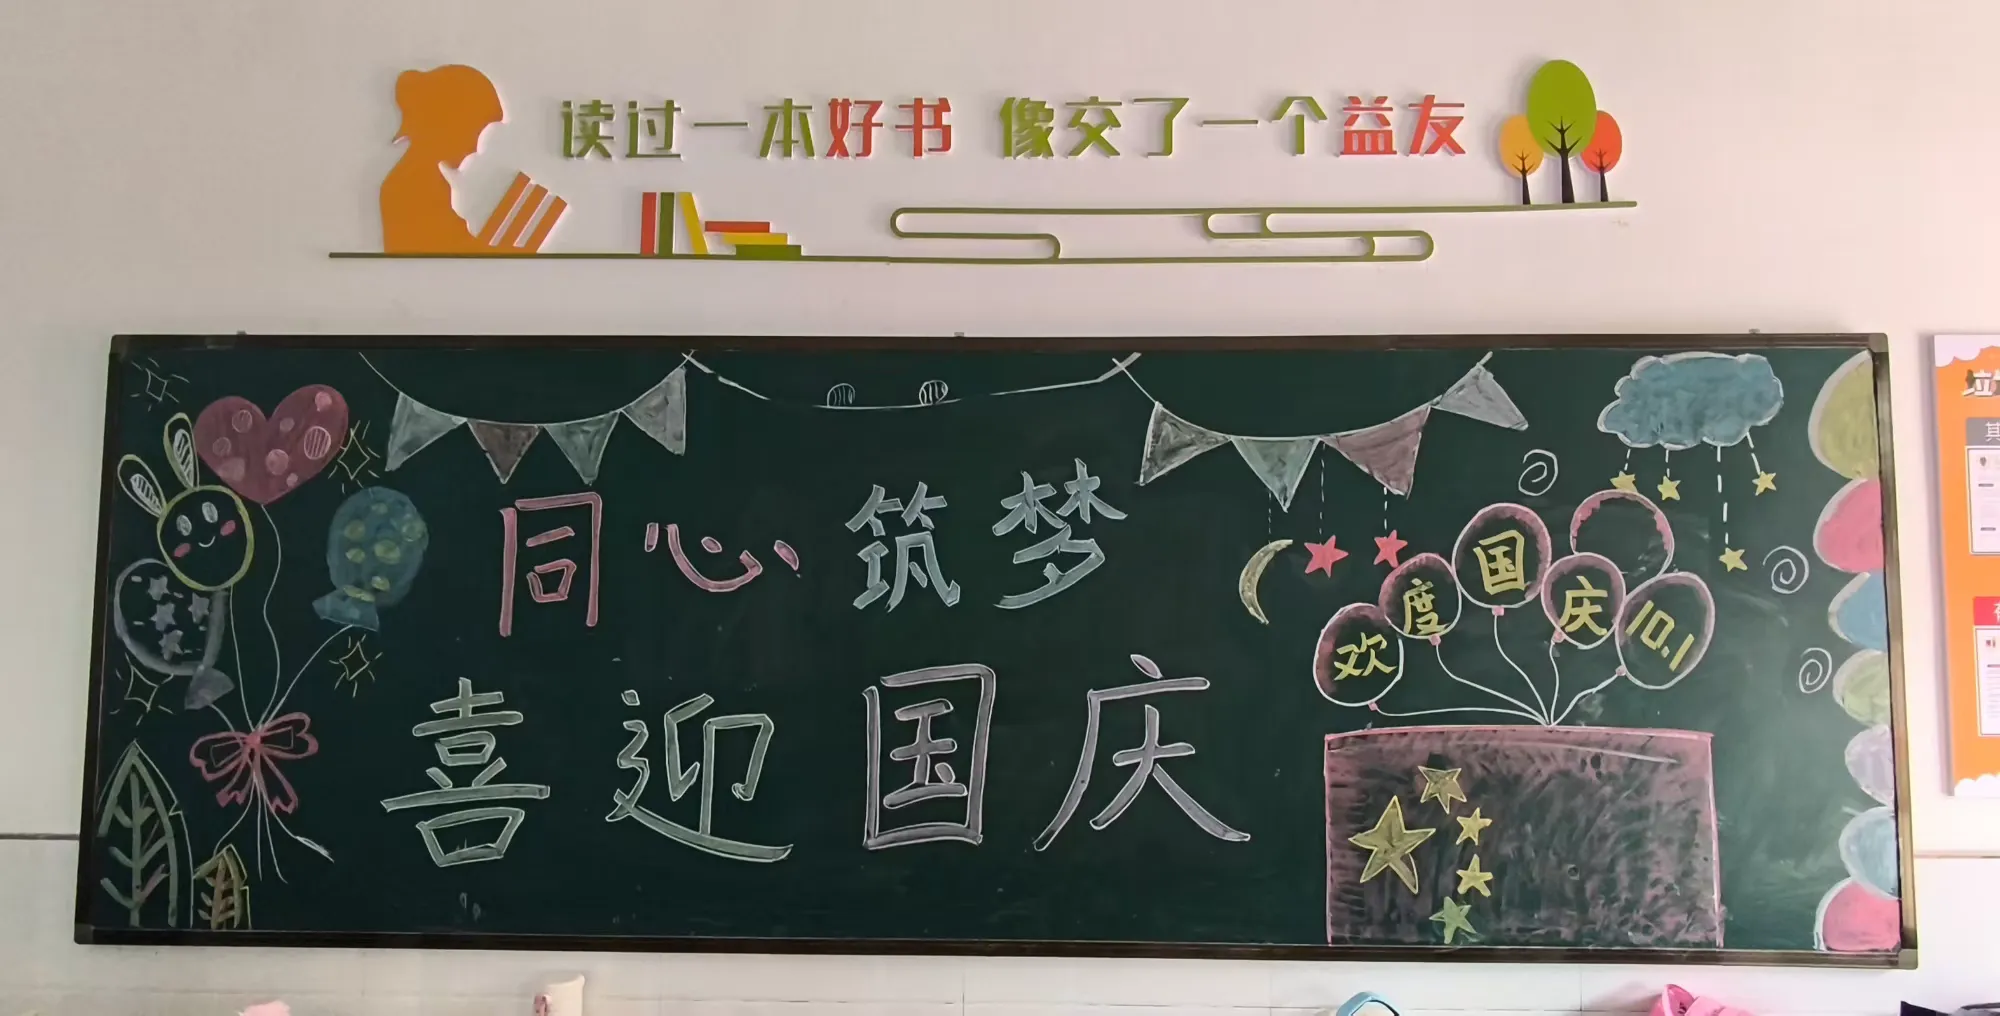 读过一本好书 像交了一个益友
同心筑梦
喜迎国庆
欢度国庆10.1